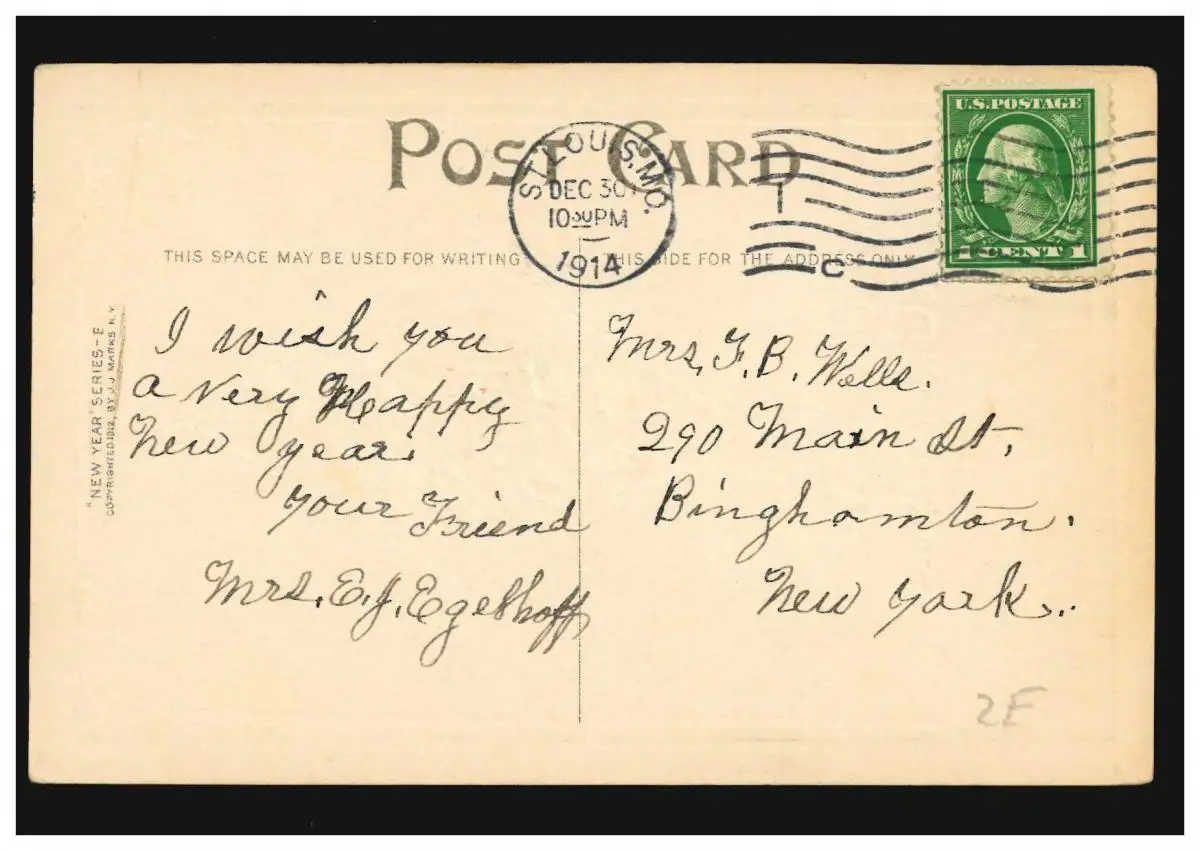 POST CARD
ST. LOUIS, MO.
DEC 30
10 30 PM
1914
1
C
U.S. POSTAGE
1 CENT 1
THIS SPACE MAY BE USED FOR WRITING
THIS SIDE FOR THE ADDRESS ONLY
"NEW YEAR" SERIES-E
COPYRIGHTED 1912, BY J.J. MARKS N.Y.
I wish you
a very Happy
New year.
your Friend
Mrs. E. J. Egelhoff
Mrs. F. B. Wells.
290 Main St,
Binghamton.
New York.
2E